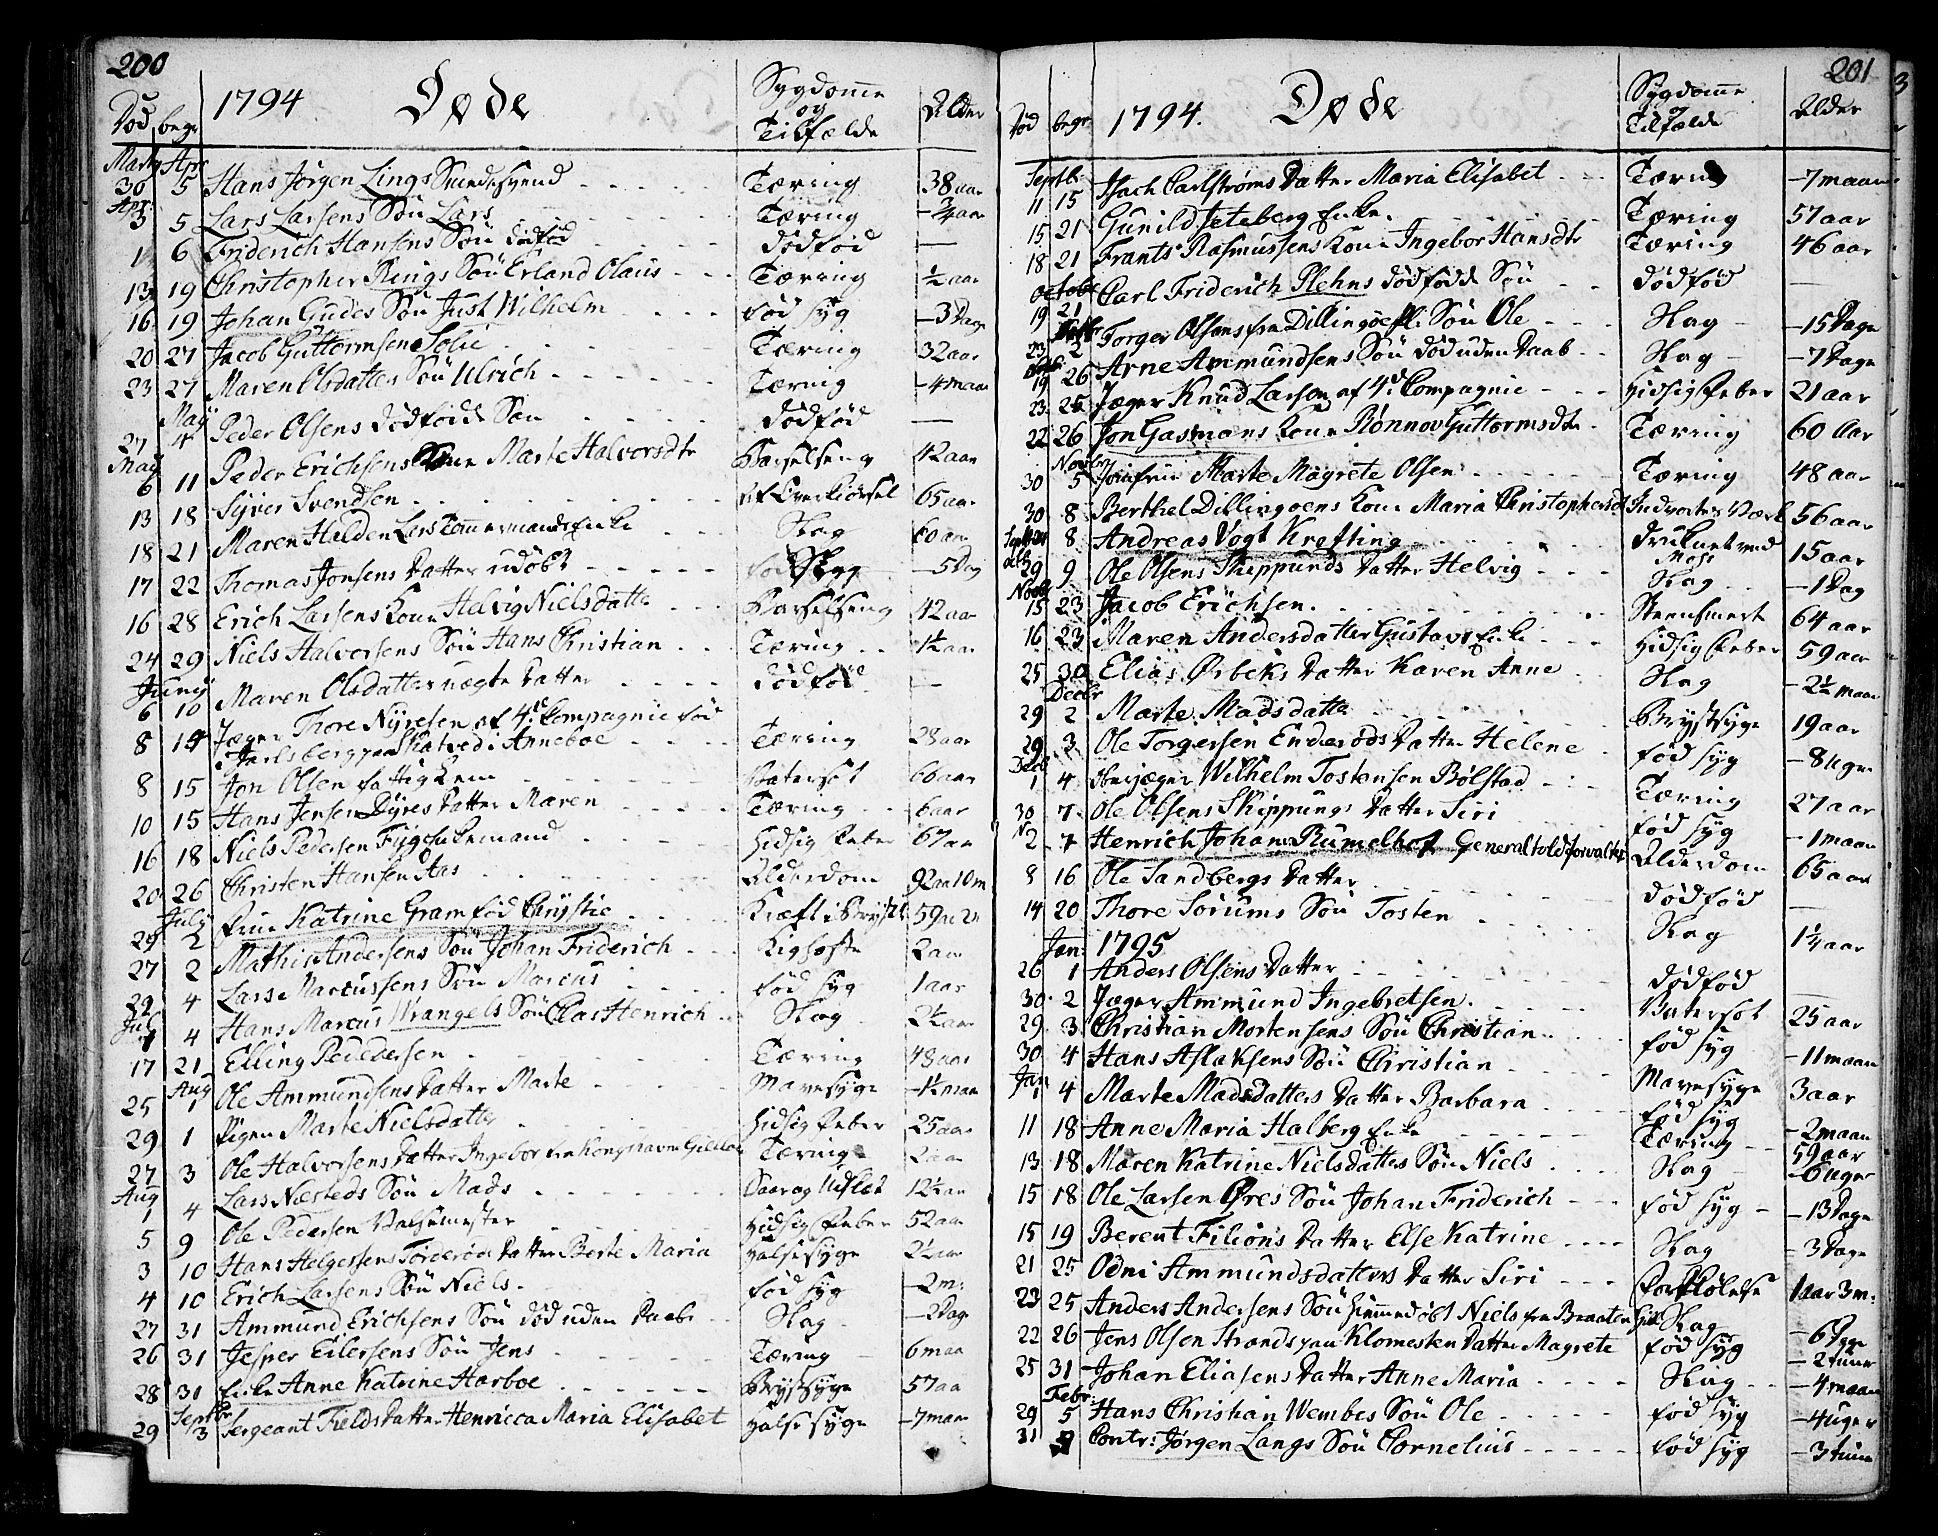 200
1794 Døde
Sygdomme og Tilfælde
Alder
Død begr
Marty Apr
30 5 Hans Jørgen Lings Svendsvend Tæring 38 aar
Apr:
3 5 Lars Larsens Søn Lars Tæring ¾ aar
1 6 Friderich Hansens Søn dødfød dødfød —
13 19 Christopher Rings Søn Erland Claus Tæring ½ aar
16 19 Johan Gudes Søn Just Wilhelm fød syg 3 Dage
20 27 Jacob Guttormsen Solie Tæring 32 aar
23 27 Maren Olsdatters Søn Ulrich Tæring 4 maan
May
27 4 Peder Olsens dødfødde Søn dødfød —
May
6 11 Peder Erichsens Kone Marte Halvorsdtr Barselseng 42 aar
13 18 Syver Svendsen 65 aar
18 21 Maren Halden Lars Tømmermands Enke Slag 60 aar
17 22 Thomas Jonsens Datter udøbt fød Syg 5 Dag
16 28 Erich Larsens Kone Helvig Nielsdatter Barselseng 42 aar
24 29 Niels Halvorsens Søn Hans Christian Tæring 1½ aar
Juny
6 10 Maren Olsdatters uægte Datter dødfød —
8 14 Jæger Thore Nyresen af 4de Compagnie fød
i Jarlsberg paa Skatvedt Anneboe Tæring 28 aar
8 15 Jon Olsen fattig Lem Vatersot 66 aar
10 15 Hans Jensen Dyres Datter Maren Tæring 6 aar
16 18 Niels Pedersen Hidsig Feber 67 aar
20 26 Christen Hansen Aas Alderdom 92 aar 10 m
July
29 2 Frue Katrine Gram fød Chrystie Kræft i Bryst
27 2 Mathis Andersens Søn Johan Friderich Kighoste 2 aar
29 4 Lars Marcussens Søn Marcus fød syg 1 aar
Jul
1 4 Hans Marcus Wrangels Søn Clas Henrich Slag 2½ aar
17 21 Elling Pedersen Tæring 48 aar
Aug
25 1 Ole Ammundsens Datter Marte Mavesyge 1½ maan
29 1 Pigen Marte Nielsdatter Hidsig Feber 25 aar
27 3 Ole Halvorsens Datter Ingebor Tæring 2 aar
Aug
1 4 Lars Næsteds Søn Mads 12½ aar
5 9 Ole Pedersen Hidsig Feber 52 aar
3 10 Hans Helgersens Datter Berte Maria Halsesyge 2½ aar
4 10 Erich Larsens Søn Niels fød syg 2 m:
27 31 Ammund Erichsens Søn død uden Daab Slag 2 Dage
26 31 Jesper Eilersens Søn Jens Tæring 6 maa
28 31 Enke Anne Katrine Harboe Brystsyge 57 aa
Septbr
29 3 Sergeant Fields Datter Henricca Maria Elisabet Halsesyge 7 maan
201
1794. Døde
Sygdomme og Tilfælde
Alder
Død begr
Septbr:
11 15 Isach Carlstrøms Datter Maria Elisabet Tæring 7 maan
15 21 Gunild Seteberg Enke Tæring 57 aar
18 21 Frants Rasmussens Kone Ingebor Hansdtr Tæring 46 aar
October
19 21 Carl Friderich Plehns dødfødde Søn dødfød —
23 2 Torger Olsens fra Dillingøen Søn Ole Slag 15 Dage
19 26 Arne Ammundsens Søn død uden Daab Slag 7 Dage
23 25 Jæger Knud Larsen af 4de Compagnie Hidsig Feber 21 aar
22 26 Jon Gasmans Kone Rønnov Guttormsdtr Tæring 60 aar
Novbr
30 5 Jomfrue Marte Magrete Olsen Tæring 48 aar
30 8 Berthel Dillingoens Kone Maria Christophersdt Indvortes Værk 56 aar
8 Andreas Vogt Krefting Druknet ved Moss 15 aar
29 9 Ole Olsens Skippunds Datter Helvig Slag 1 Dag
Novbr
15 23 Jacob Erichsen Steensmert 64 aar
16 23 Maren Andersdatter Gustavs Enke Hidsig Feber 59 aar
25 30 Elias Ørbeks Datter Karen Anne Slag 2½ maan
Decbr
29 2 Marte Madsdatter Brystsyge 19 aar
29 3 Ole Torgersen Enderøds Datter Helene fød syg 8 uger
Decb
1 4 Oberjæger Wilhelm Tostensen Bølstad Tæring 27 aar
30 7 Ole Olsens Skippungs Datter Siri fød syg 1 maan
2 7 Henrich Johan Rumelhof General toldforvalter Alderdom 65 aar
8 16 Ole Sandbergs Datter dødfød —
14 20 Thore Sorums Søn Tosten Slag 1¼ aar
Jan: 1795
26 1 Anders Olsens Datter dødfød
30 2 Jæger Ammund Ingebretsen Vatersot 25 aar
29 3 Christian Mortensens Søn Christian fød syg 11 maan
30 4 Hans Aslaksens Søn Christian Mavesyge 3 aar
Jan
1 4 Marte Madsdatters Datter Barbara fød syg 2 maan
11 18 Anne Maria Halberg Enke Tæring 59 aar
13 18 Maren Katrine Nielsdatters Søn Niels Slag 6 uger
15 18 Ole Larsen Øres Søn Johan Friderich fød syg 13 Dage
15 19 Berent Filions Datter Else Katrine Slag 3 Dage
21 25 Odni Ammundsdatters Datter Siri Forkiølelse 1 aar 3 m:
23 25 Anders Andersens Søn hiemmedøbt Niels fra Braaten Slag 6 Dage
22 26 Jens Olsen Strands paa Klomesten Datter Magrete fød syg 2 timer
25 31 Johan Eliasens Datter Anne Maria Slag 4 maan
Febr:
29 5 Hans Christian Wembes Søn Ole fød syg 4 uger
31 8 Contr: Jørgen Langs Søn Cornelius fød syg 3 timer